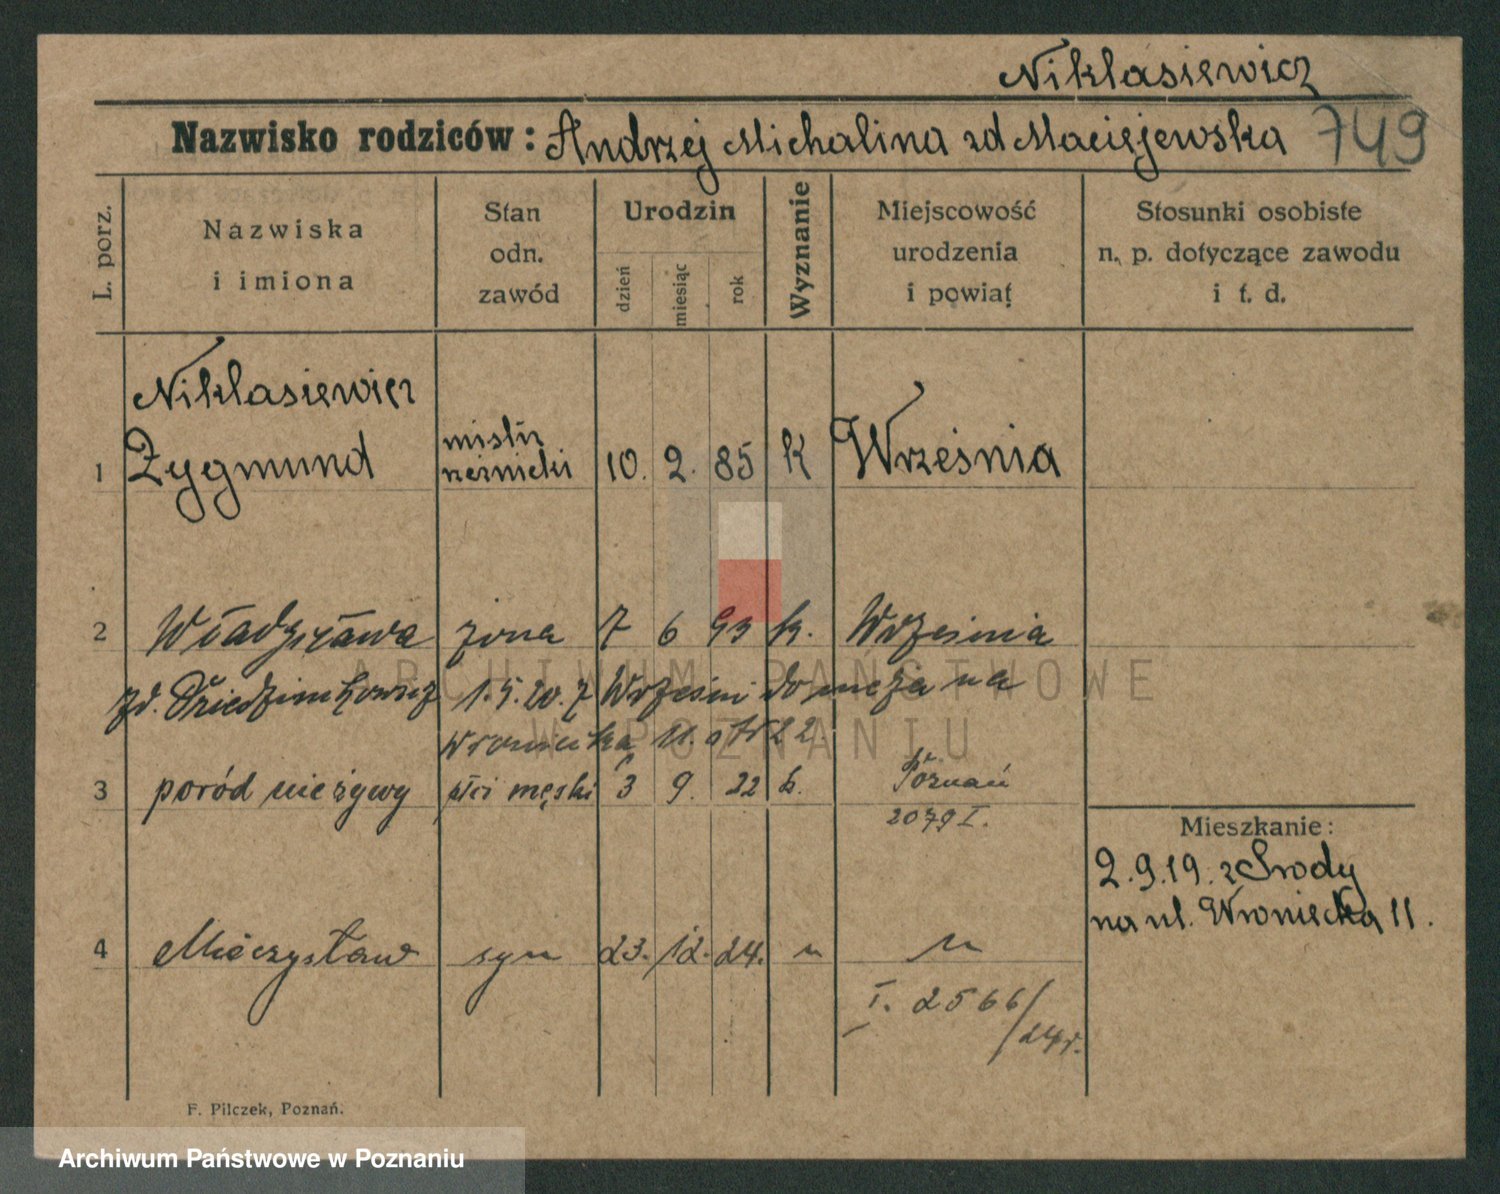 Niklasiewicz
Nazwisko rodziców: Andrzej Michalina zd Maciejewska 749
L. porz.
Nazwiska
i imiona
Stan
odn.
zawód
Urodzin
dzień
miesiąc
rok
Wyznanie
Miejscowość
urodzenia
i powiat
Stosunki osobiste
n. p. dotyczące zawodu
i t. d.
Niklasiewicz
1 Zygmund mistrz rzeźnicki 10. 2. 85 K Września
2 Władysława żona 7 6 93 k. Września
zd. 1.5.20. z Wrześni do męża na
Wroniecka 11.
3 poród nieżywy płci męski 3 9. 22 k. Poznań
2079 I.
Mieszkanie:
2.9.19. z Środy
na ul. Wroniecka 11.
4 Mieczysław syn 23. 12. 24. " "
I. 2566/24r.
F. Pilczek, Poznań.
ARCHIWUM PAŃSTWOWE
W POZNANIU
Archiwum Państwowe w Poznaniu